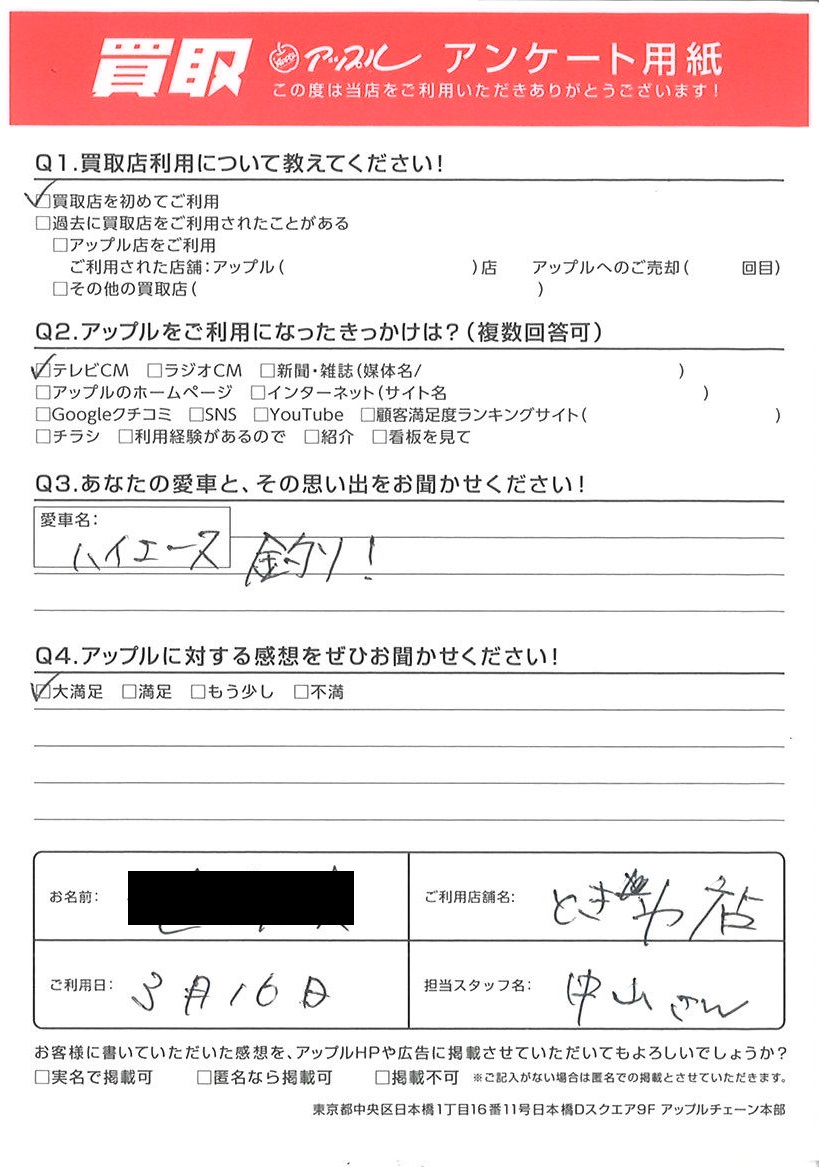 買取 アップル アンケート用紙
この度は当店をご利用いただきありがとうございます!
Q1.買取店利用について教えてください!
☑買取店を初めてご利用
□過去に買取店をご利用されたことがある
□アップル店をご利用
ご利用された店舗:アップル( )店 アップルへのご売却( 回目)
□その他の買取店( )
Q2.アップルをご利用になったきっかけは?(複数回答可)
☑テレビCM □ラジオCM □新聞・雑誌(媒体名/ )
□アップルのホームページ □インターネット(サイト名 )
□Googleクチコミ □SNS □YouTube □顧客満足度ランキングサイト( )
□チラシ □利用経験があるので □紹介 □看板を見て
Q3.あなたの愛車と、その思い出をお聞かせください!
愛車名:
ハイエース 釣り!
Q4.アップルに対する感想をぜひお聞かせください!
☑大満足 □満足 □もう少し □不満
お名前:
ご利用店舗名: ときわ店
ご利用日: 3月16日
担当スタッフ名: 中山さん
お客様に書いていただいた感想を、アップルHPや広告に掲載させていただいてもよろしいでしょうか?
□実名で掲載可 □匿名なら掲載可 □掲載不可 ※ご記入がない場合は匿名での掲載とさせていただきます。
東京都中央区日本橋1丁目16番11号日本橋Dスクエア9F アップルチェーン本部